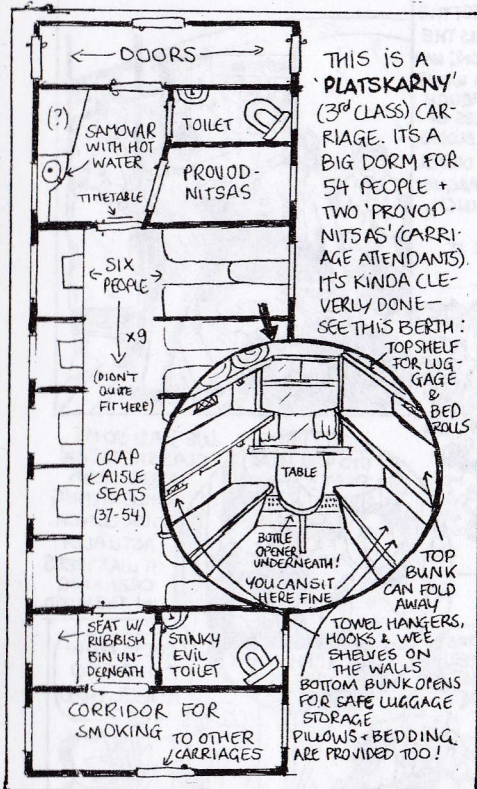 DOORS
(?)
SAMOVAR
WITH HOT
WATER
TOILET
TIMETABLE
PROVOD-
NITSAS
SIX
PEOPLE
x9
(DIDN'T
QUITE
FIT HERE)
CRAP
AISLE
SEATS
(37-54)
SEAT W/
RUBBISH
BIN UN-
DERNEATH
STINKY
EVIL
TOILET
CORRIDOR FOR
SMOKING
TO OTHER
CARRIAGES
THIS IS A
'PLATSKARNY'
(3rd CLASS) CAR-
RIAGE. IT'S A
BIG DORM FOR
54 PEOPLE +
TWO 'PROVOD-
NITSAS' (CARRI-
AGE ATTENDANTS).
IT'S KINDA CLE-
VERLY DONE—
SEE THIS BERTH:
TOP SHELF
FOR LUG-
GAGE
&
BED
ROLLS
TABLE
BOTTLE
OPENER
UNDERNEATH!
YOU CAN SIT
HERE FINE
TOP
BUNK
CAN FOLD
AWAY
TOWEL HANGERS,
HOOKS & WEE
SHELVES ON
THE WALLS
BOTTOM BUNK OPENS
FOR SAFE LUGGAGE
STORAGE
PILLOWS + BEDDING
ARE PROVIDED TOO!